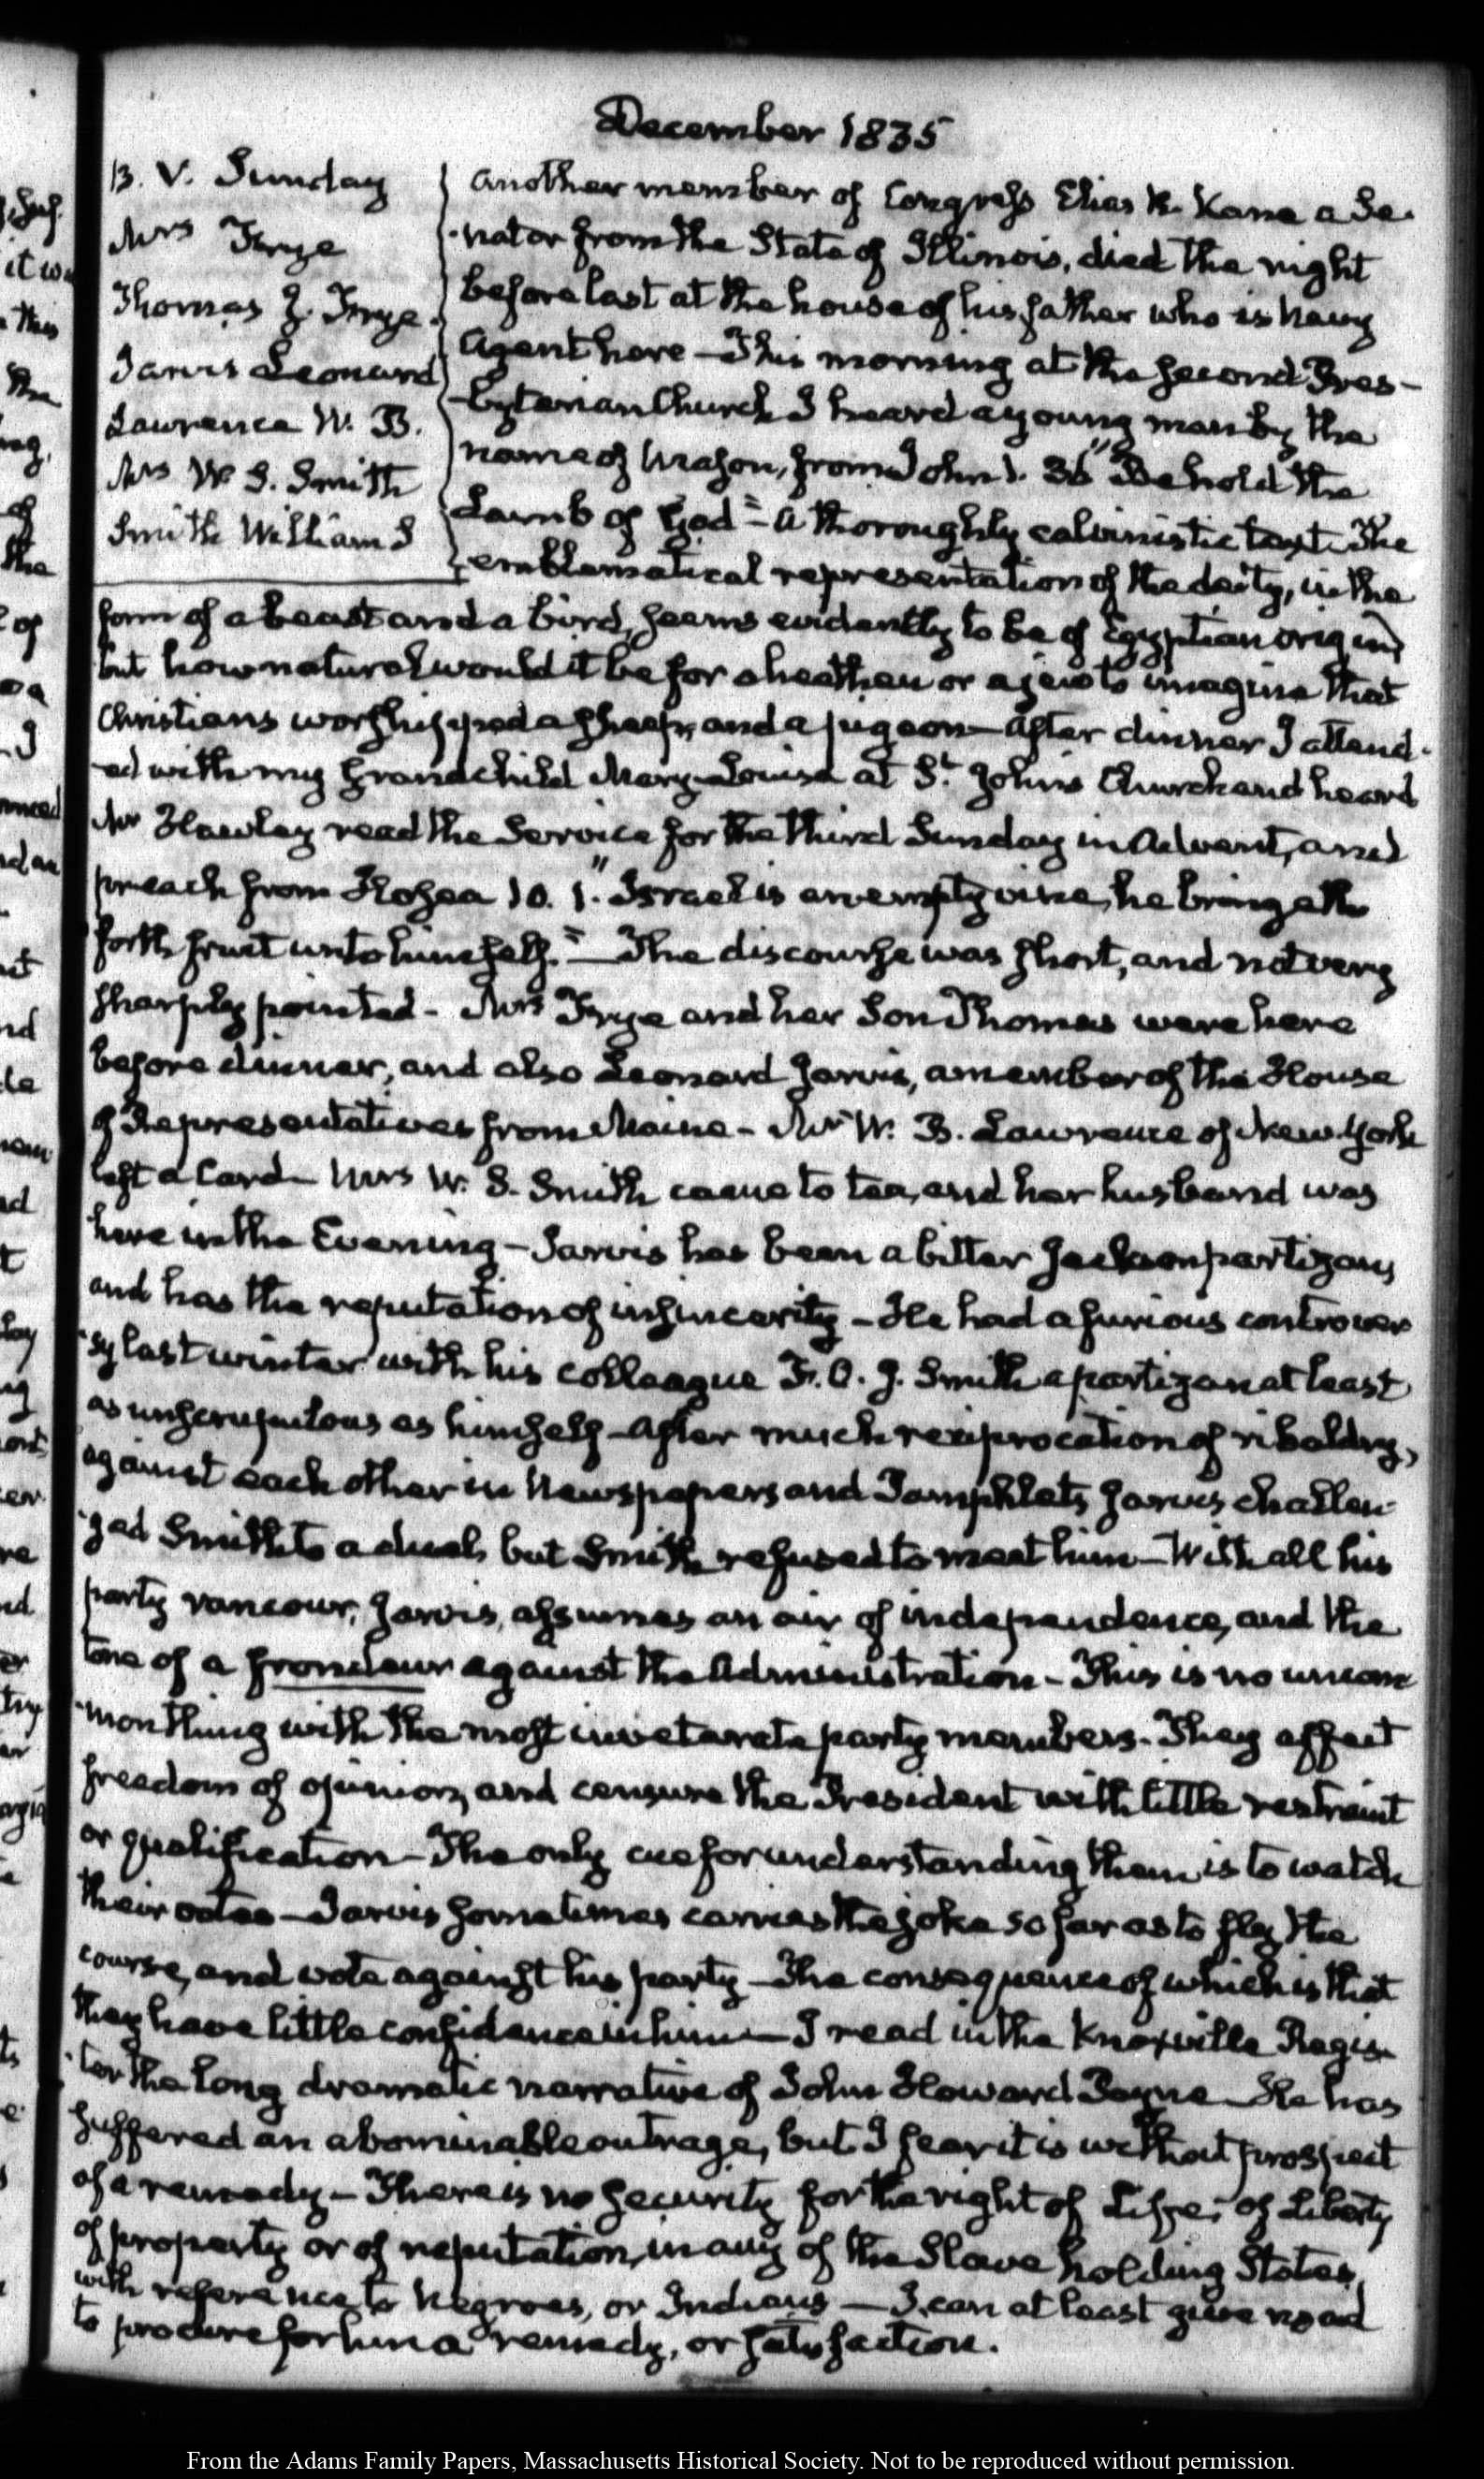 December 1835
13. V. Sunday
Mrs Frye
Thomas J. Frye.
Jarvis Leonard
Lawrence W. B.
Mrs W. S. Smith
Smith William S
Another member of Congress Elias K. Kane a Se-
-nator from the State of Illinois, died the night
before last at the house of his father who is Navy
Agent here — This morning at the second Pres-
-byterian Church I heard a young man by the
name of Mason, from John 1. 36 "Behold the
Lamb of God" — A thoroughly calvinistic text. The
emblematical representation of the deity, in the
form of a beast and a bird, seems evidently to be of Egyptian origin,
but how natural would it be for a heathen or a jew to imagine that
Christians worshipped a sheep, and a pigeon — After dinner I attend-
-ed with my Grandchild Mary-Louisa at St. John's Church and heard
Mr Hawley read the Service for the third Sunday in Advent, and
preach from Hosea 10. 1. "Israel is an empty vine, he bringeth
forth fruit unto himself." — The discourse was short, and not very
sharply pointed - Mrs Frye and her Son Thomas were here
before dinner, and also Leonard Jarvis, a member of the House
of Representatives from Maine - Mr W. B. Lawrence of New York
left a Card — Mrs W. S. Smith came to tea, and her husband was
here in the Evening — Jarvis has been a bitter Jackson partizan,
and has the reputation of insincerity — He had a furious controver
-sy last winter with his colleague F. O. J. Smith a partizan at least
as unscrupulous as himself — After much reciprocation of ribaldry,
against each other in Newspapers and Pamphlets, Jarvis challen-
-ged Smith to a duel, but Smith refused to meet him — With all his
party rancour, Jarvis, assumes an air of independence, and the
tone of a frondeur against the Administration - This is no uncom
-mon thing with the most inveterate party members. They affect
freedom of opinion, and censure the President with little restraint
or qualification — The only cue for understanding them is to watch
their votes — Jarvis sometimes carries the joke so far as to fly the
course, and vote against his party — The consequence of which is that
they have little confidence in him — I read in the Knoxville Regis-
-ter the long dramatic narrative of John Howard Payne — He has
suffered an abominable outrage, but I fear it is without prospect
of a remedy — There is no security for the right of Life, of Liberty
of property or of reputation, in any of the Slave holding States,
with reference to Negroes, or Indians — I can at least give no aid
to procure for him a remedy, or satisfaction.
From the Adams Family Papers, Massachusetts Historical Society. Not to be reproduced without permission.